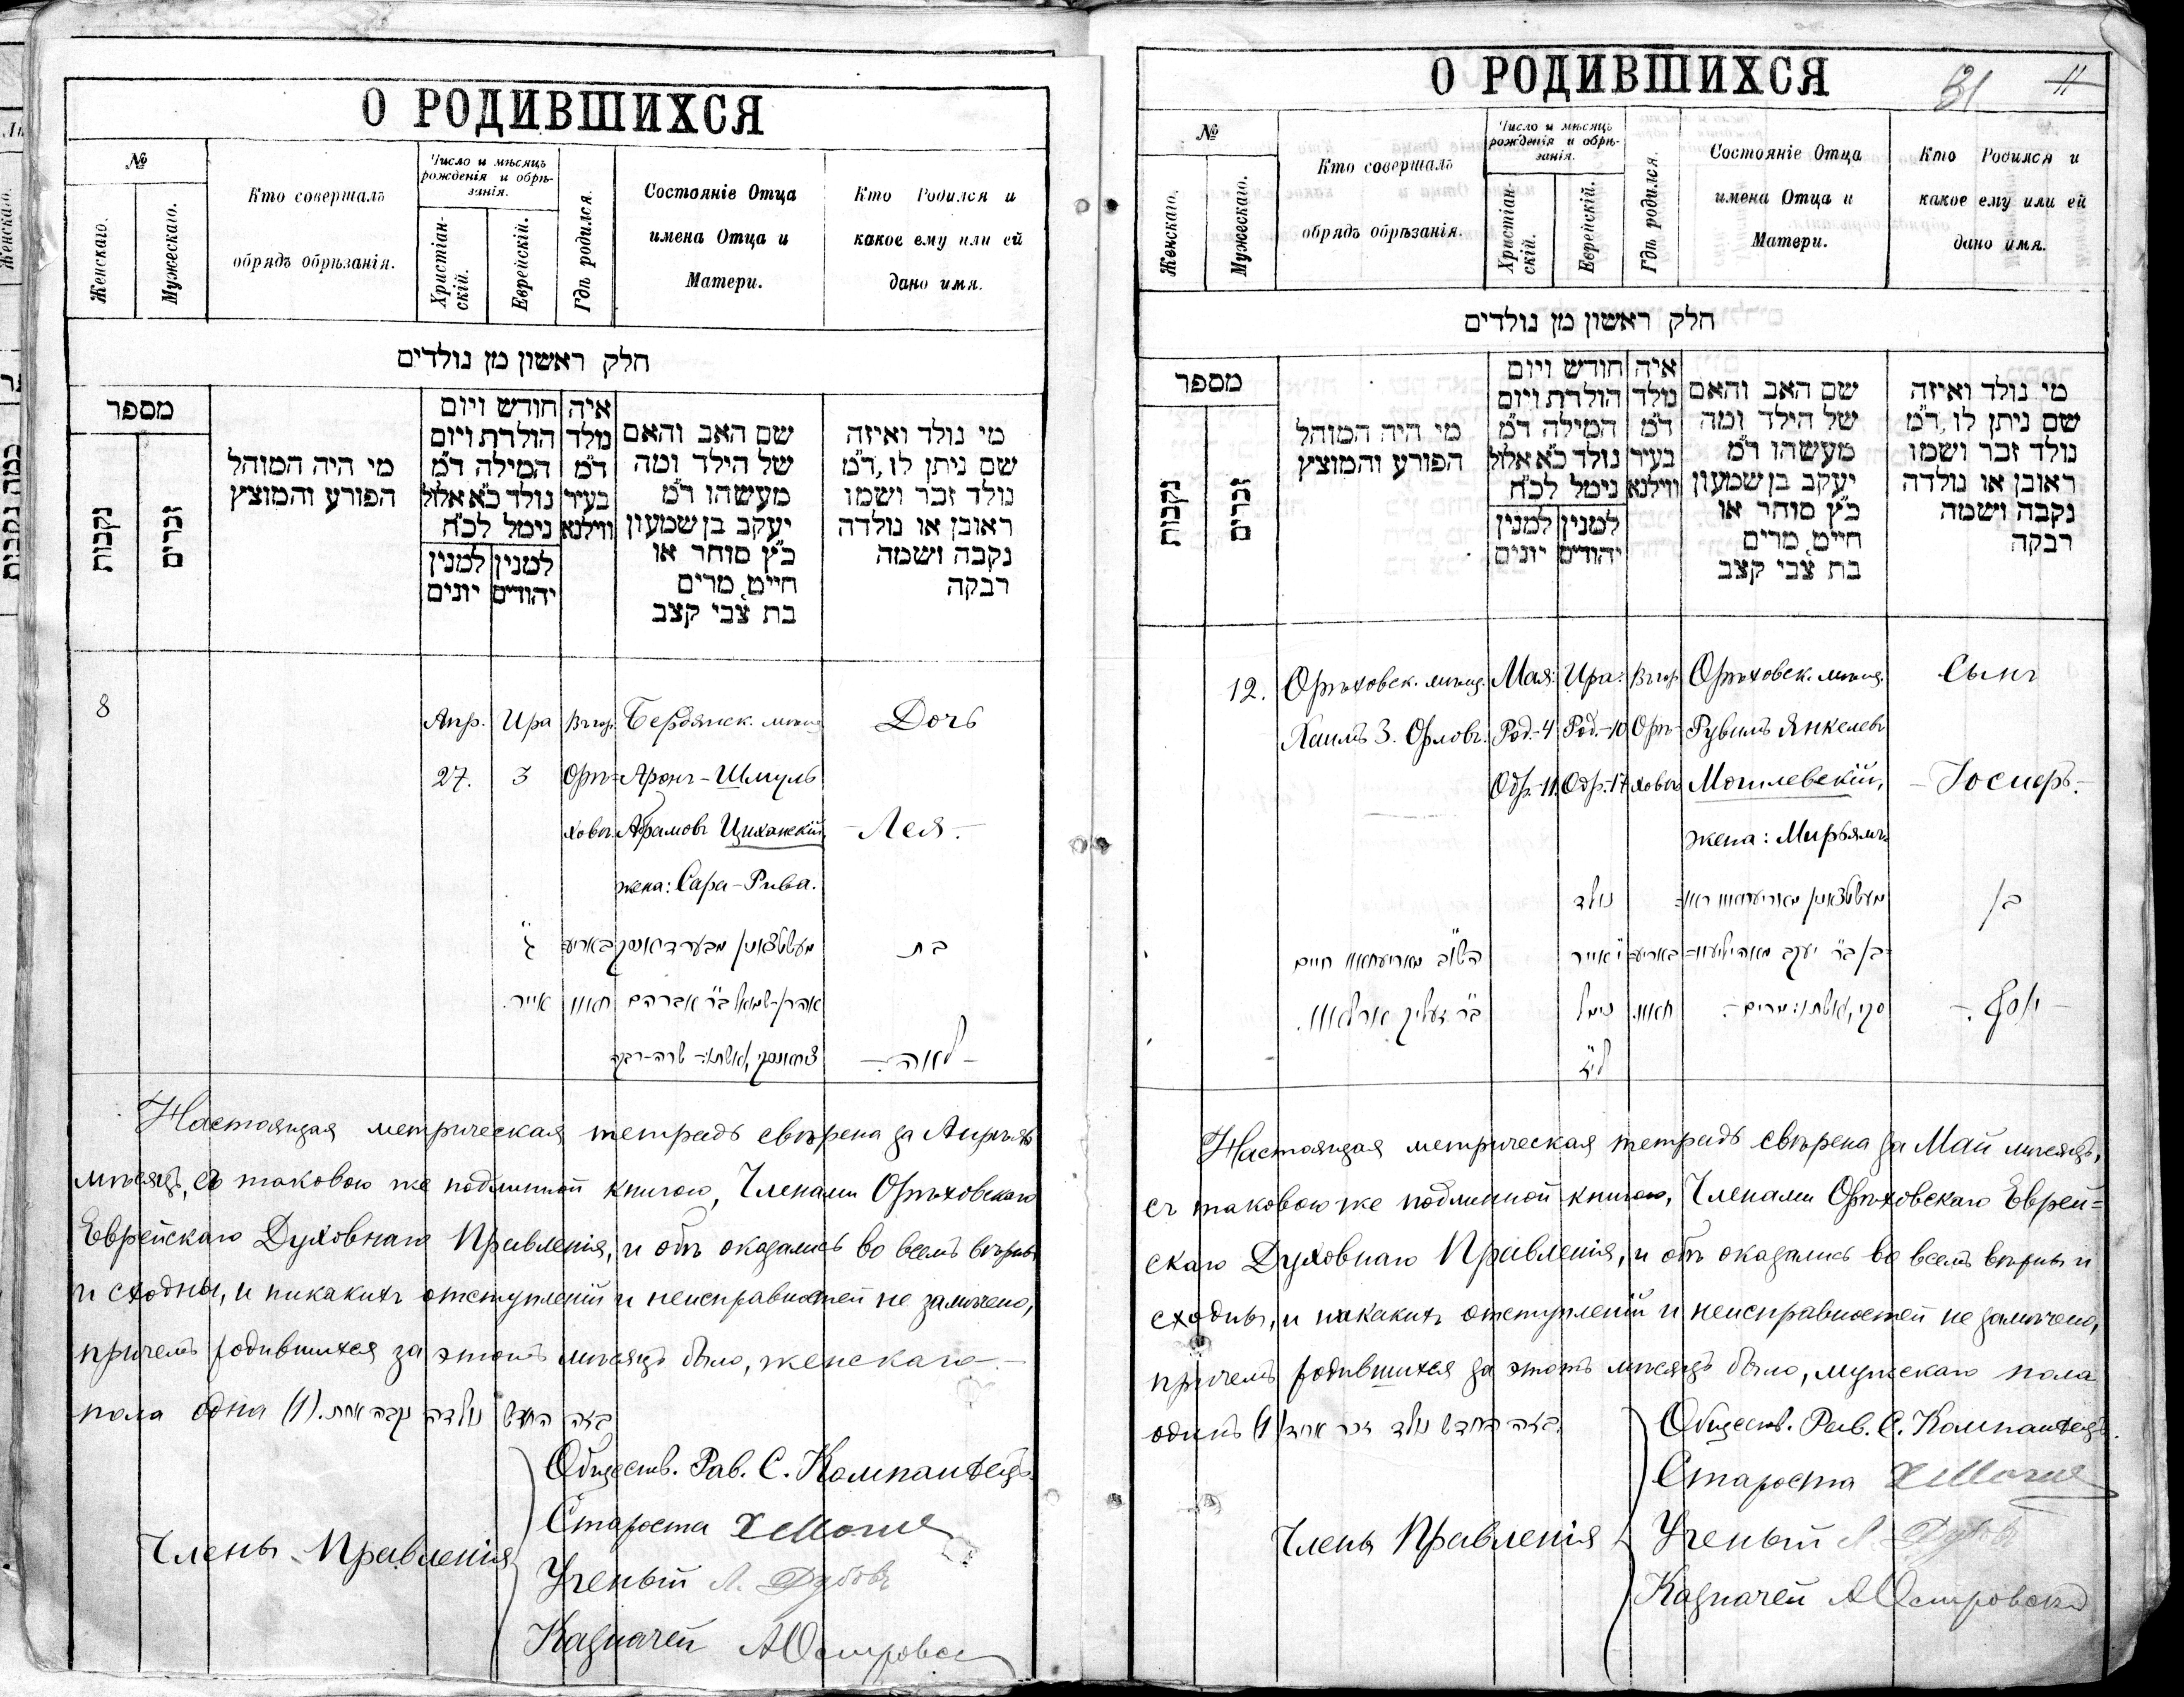 О РОДИВШИХСЯ
№
Женскаго.
Мужескаго.
Кто совершалъ
обрядъ обрѣзанія.
Число и мѣсяцъ
рожденія и обрѣ-
занія.
Христіан-
скій.
Еврейскій.
Гдѣ родился.
Состояніе Отца
имена Отца и
Матери.
Кто Родился и
какое ему или ей
дано имя.
חלק ראשון מן נולדים
מספר
נקבות
זכרים
מי היה המוהל
הפורע והמוצץ
חודש ויום
הולדת ויום
המילה ד"מ
נולד כ"א אלול
נימל לכ"ח
למנין יהודים
למנין יונים
איה
נולד
ד"מ
בעיר
ווילנא
שם האב והאם
של הילד ומה
מעשהו ד"מ
יעקב בן שמעון
כ"ץ סוחר או
חייט, מרים
בת צבי קצב
מי נולד ואיזה
שם ניתן לו, ד"מ
נולד זכר ושמו
ראובן או נולדה
נקבה ושמה
רבקה
8
Апр. Ира Вгор. Бердянск. мѣщ. Дочь
27. 3 Орѣ- Аронъ-Шмуль
ховѣ Абрамовъ Циханскій, - Лея. -
жена: Сара-Рива.
בת
אהרן-שמואל ב"ר אברהם
אייר.
- לאה -
Настоящая метрическая тетрадь свѣрена за Апрѣль
мѣсяцъ, съ таковою же подлинной книгою, Членами Орѣховскаго
Еврейскаго Духовнаго Правленія, и обѣ оказались во всемъ вѣрны
и сходны, и никакихъ отступленій и неисправностей не замѣчено,
причемъ родившихся за этотъ мѣсяцъ было, женскаго -
пола одна (1). בזה החדש נולדה נקבה אחת
Обществ. Рав. С. Компанѣецъ.
Староста
Члены Правленія
Ученый Л. Дубовъ
Казначей А Островск
О РОДИВШИХСЯ
31 11
№
Женскаго.
Мужескаго.
Кто совершалъ
обрядъ обрѣзанія.
Число и мѣсяцъ
рожденія и обрѣ-
занія.
Христіан-
скій.
Еврейскій.
Гдѣ родился.
Состояніе Отца
имена Отца и
Матери.
Кто Родился и
какое ему или ей
дано имя.
חלק ראשון מן נולדים
מספר
נקבות
זכרים
מי היה המוהל
הפורע והמוצץ
חודש ויום
הולדת ויום
המילה ד"מ
נולד כ"א אלול
נימל לכ"ח
למנין יהודים
למנין יונים
איה
נולד
ד"מ
בעיר
ווילנא
שם האב והאם
של הילד ומה
מעשהו ד"מ
יעקב בן שמעון
כ"ץ סוחר או
חייט, מרים
בת צבי קצב
מי נולד ואיזה
שם ניתן לו, ד"מ
נולד זכר ושמו
ראובן או נולדה
נקבה ושמה
רבקה
12. Орѣховск. мѣщ. Мая: Ира: Вгор. Орѣховск. мѣщ. Сынъ
Хаимъ З. Орловъ. Род.-4 Род.-10 Орѣ- Рувимъ Янкелевъ
Обр.-11. Обр.-17 ховѣ Могилевскій, - Іосифъ. -
жена: Мирьямъ.
נולד
בן
י' אייר
נימל
- יוסף. -
Настоящая метрическая тетрадь свѣрена за Май мѣсяцъ,
съ таковою же подлинной книгою, Членами Орѣховскаго Еврей=
скаго Духовнаго Правленія, и обѣ оказались во всемъ вѣрны и
сходны, и никакихъ отступленій и неисправностей не замѣчено,
причемъ родившихся за этотъ мѣсяцъ было, мужескаго пола
одинъ (1) בזה החדש נולד זכר אחד.
Обществ. Рав. С. Компанѣецъ.
Староста
Члены Правленія
Ученый Л. Дубовъ
Казначей А Островскій